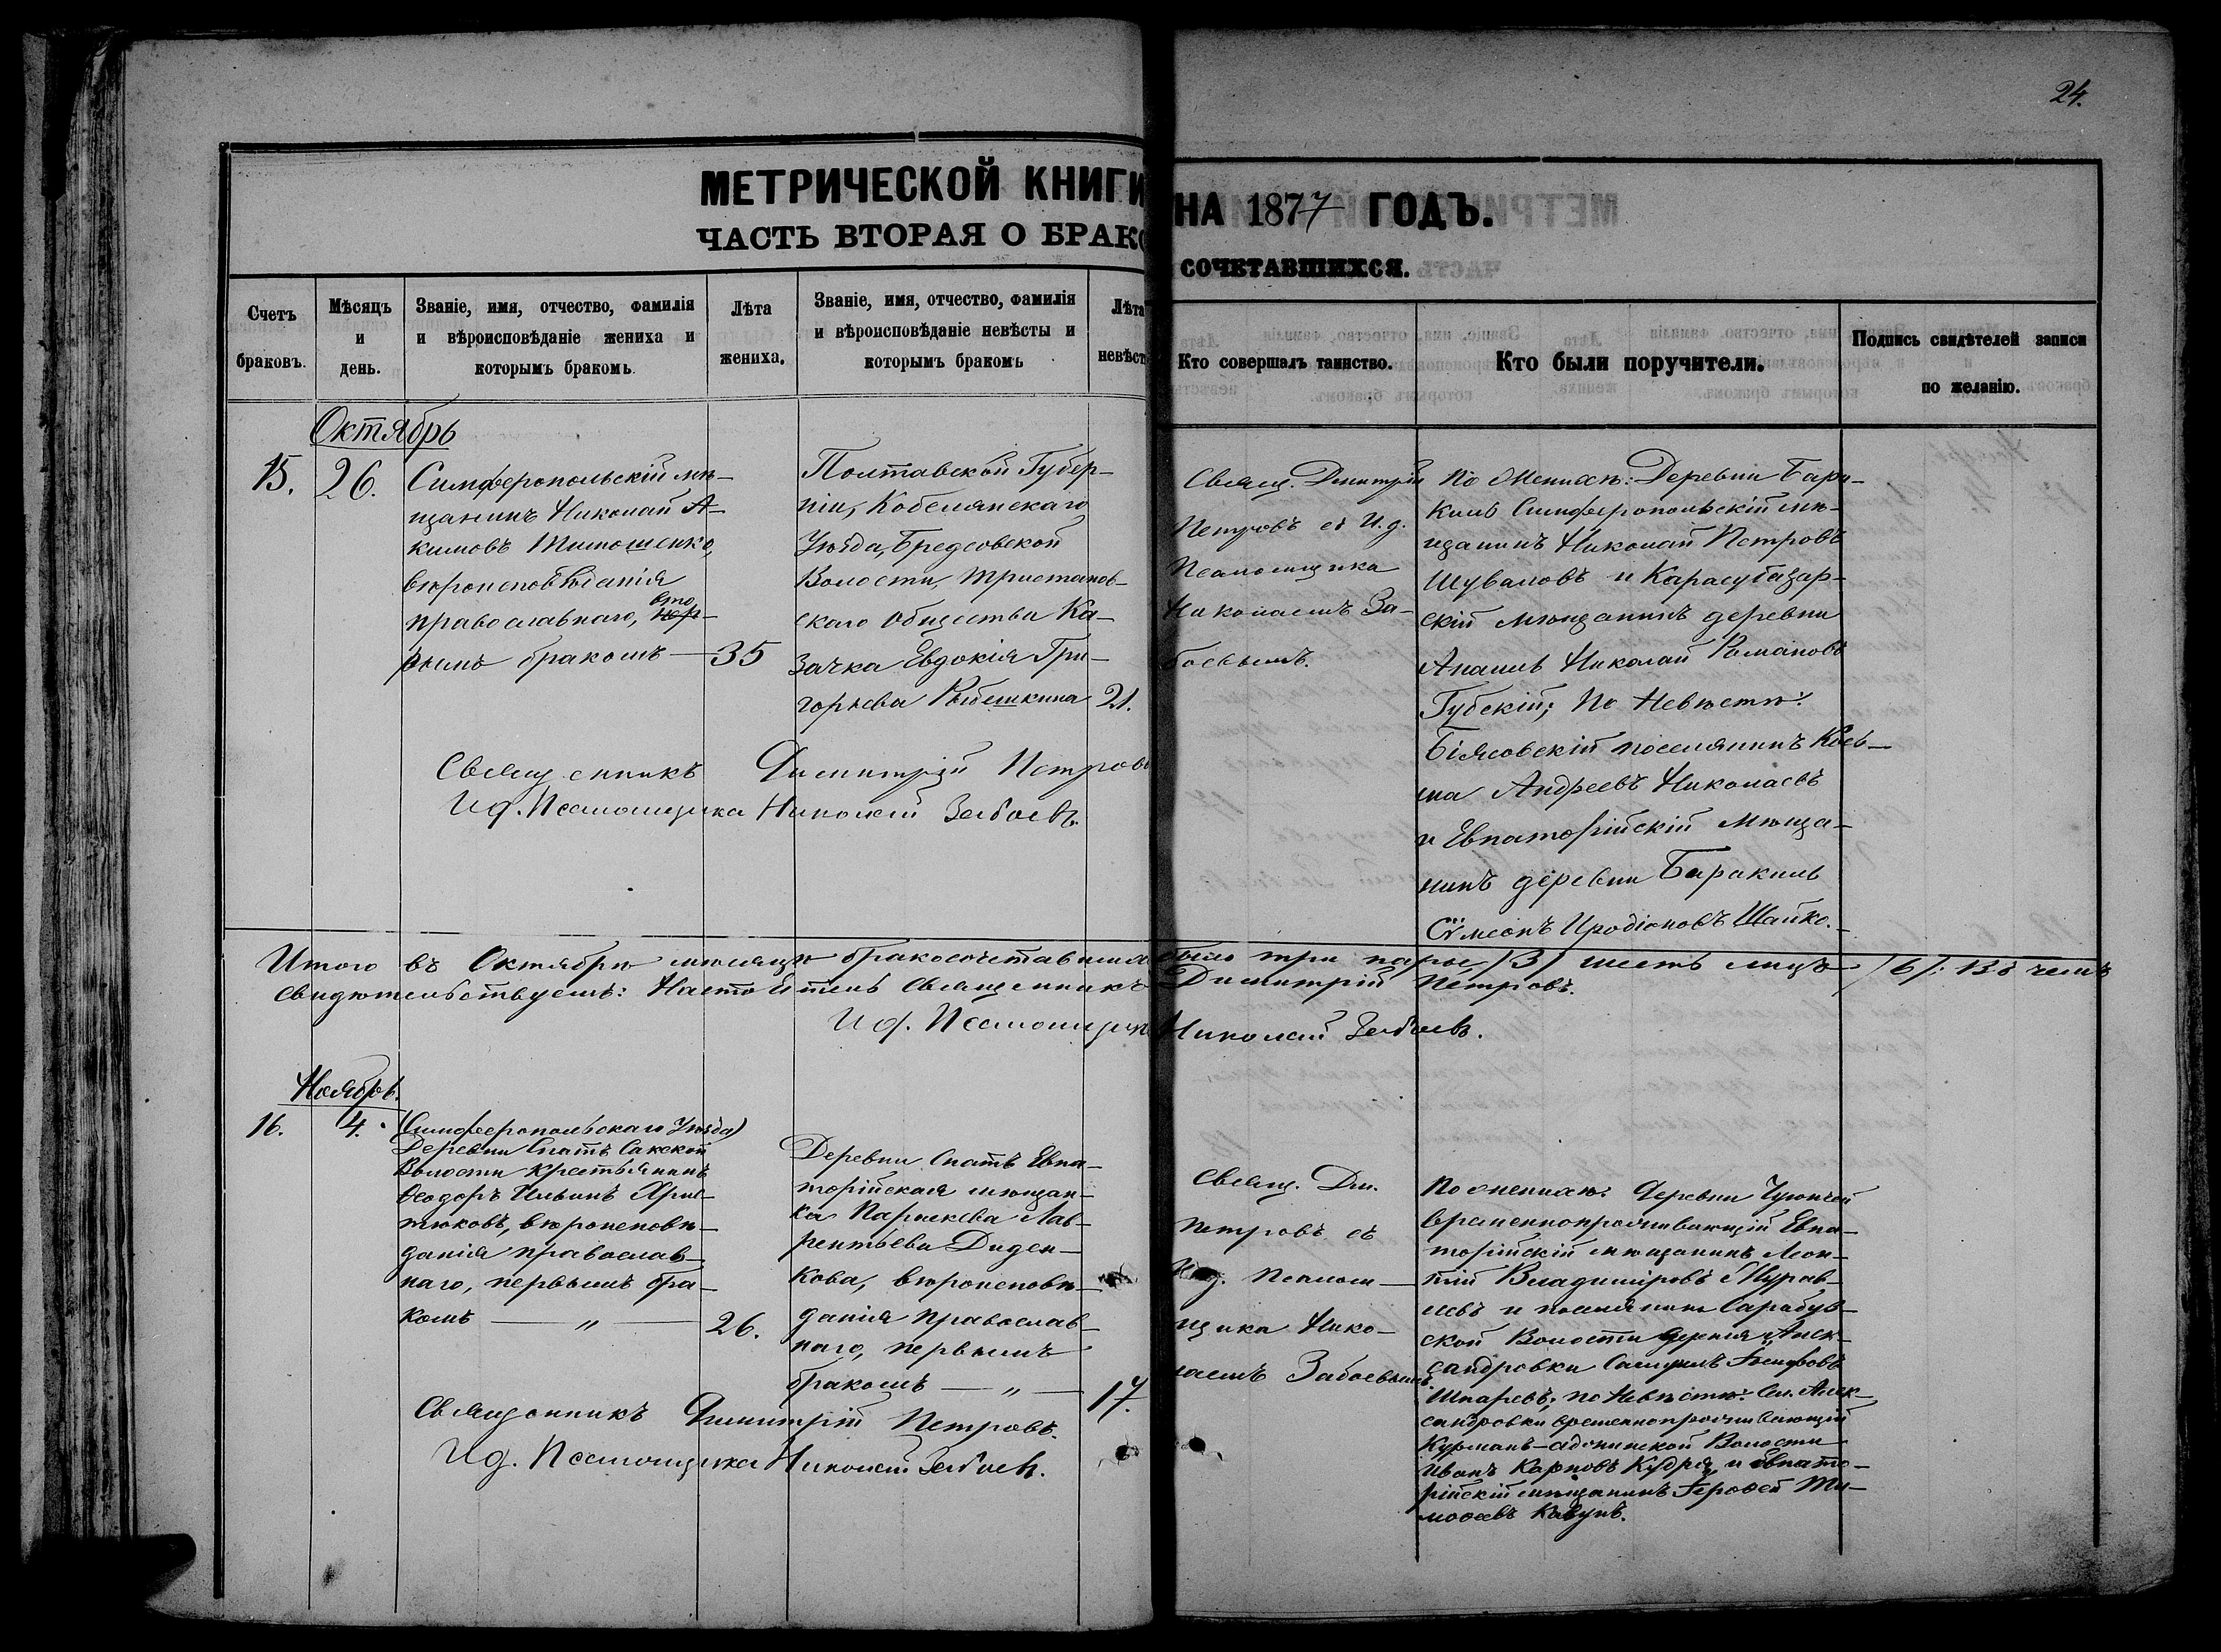 24.
МЕТРИЧЕСКОЙ КНИГИ НА 1877 ГОДЪ.
ЧАСТЬ ВТОРАЯ О БРАКОСОЧЕТАВШИХСЯ.
Счетъ браковъ.
Мѣсяцъ и день.
Званіе, имя, отчество, фамилія
и вѣроисповѣданіе жениха и
которымъ бракомъ.
Лѣта жениха.
Званіе, имя, отчество, фамилія
и вѣроисповѣданіе невѣсты и
которымъ бракомъ
Лѣта невѣст
Кто совершалъ таинство.
Кто были поручители.
Подпись свидѣтелей записи
по желанію.
Октябрь
15.
26.
Симферопольскій мѣ-
щанинъ Николай А-
кимовъ Тимошенко,
вѣроисповѣданія
православнаго, вто
рымъ бракомъ —
35
Полтавской Губер-
ніи, Кобелякскаго
Уѣзда,
Волости,
скаго Общества Ка-
зачка Евдокія Гри-
горьева Рыбешкина
21.
Свящ. Димитрій
Петровъ съ И.д.
Псаломщика
Николаемъ За-
боевымъ.
По Женихѣ: Деревни Бара-
киль Симферопольскій мѣ-
щанинъ Николай Петровъ
Шуваловъ и Карасубазар-
скій мѣщанинъ деревни
Николай Романовъ
Губскій; По Невѣстѣ:
поселянинъ Кось-
ма Андреевъ Николаевъ
и Евпаторійскій мѣща-
нинъ деревни Баракиль
Сѵмеонъ Иродіоновъ Шайко.-
Священникъ Димитрій Петровъ
И.д. Псаломщика Николай Забоевъ.
Итого въ Октябрѣ мѣсяцѣ бракосочетавшихся было три пары /3/ шесть лицъ /6/: Въ чемъ
свидѣтельствуемъ: Настоятель Священникъ Димитрій Петровъ.
И.д. Псаломщика Николай Забоевъ.
Ноябрь.
16.
4.
(Симферопольскаго Уѣзда)
Деревни Спатъ Сакской
Волости крестьянинъ
Ѳеодоръ Ильинъ Хрис-
тюковъ, вѣроисповѣ-
данія православ-
наго, первымъ бра-
комъ — „ —
26.
Деревни Спатъ Евпа-
торійская мѣщан-
ка Параскева Лав-
рентьева Диден-
кова, вѣроисповѣ-
данія православ-
наго, первымъ
бракомъ — „ —
17.
Свящ. Дим.
Петровъ съ
И.д. Псалом-
щика Нико-
лаемъ Забоевымъ
По женихѣ: Деревни
временнопроживающій Евпа-
торійскій мѣщанинъ Леон-
тій Владиміровъ Журав-
левъ и поселянинъ Сарабуз-
ской Волости деревни Алек-
сандровки
Шпаревъ; по Невѣстѣ: Сел. Алек-
сандровки временнопроживающій
Курманъ-аджинской Волости
Иванъ Карповъ Кудря, и Евпато-
рійскій мѣщанинъ Іероѳей Ти-
моѳеевъ Кавунъ.
Священникъ Димитрій Петровъ.
И.д. Псаломщика Николай Забоевъ.